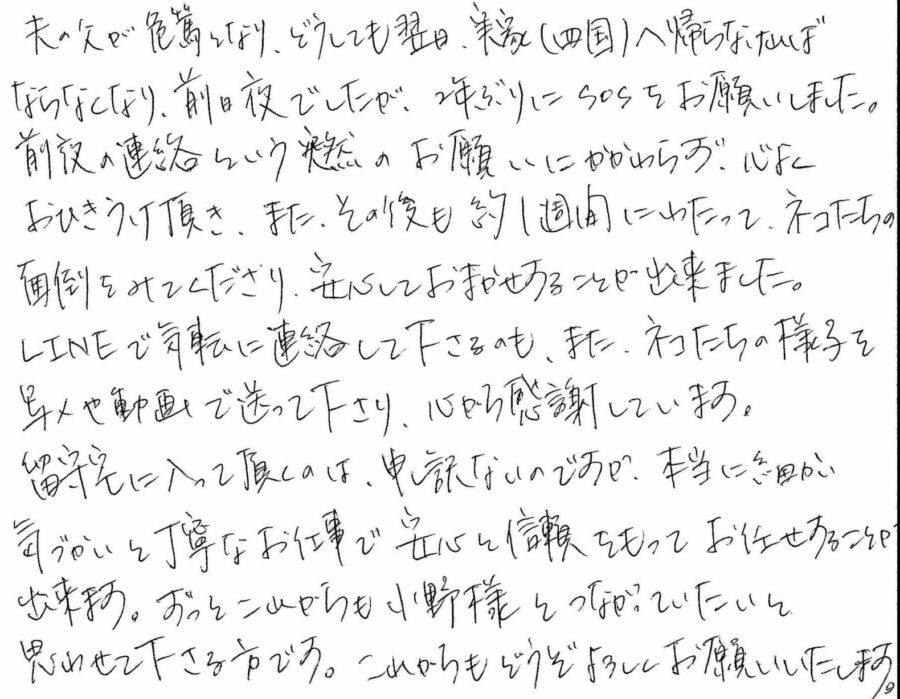 夫の父が危篤となり、どうしても翌日、実家(四国)へ帰らなければ
ならなくなり、前日夜でしたが、2年ぶりにSOSをお願いしました。
前夜の連絡という突然のお願いにかかわらず、心よく
おひきうけ頂き、また、その後も約1週間にわたって、ネコたちの
面倒をみてくださり、安心しておまかせすることが出来ました。
LINEで気転に連絡して下さるのも、また、ネコたちの様子を
写メや動画で送って下さり、心から感謝しています。
留守宅に入って頂くのは、申し訳ないのですが、本当に細かい
気づかいと丁寧なお仕事で安心と信頼をもってお任せすることが
出来ます。ずっとこれからも小野様とつながっていたいと
思わせて下さる方です。これからもどうぞよろしくお願いいたします。